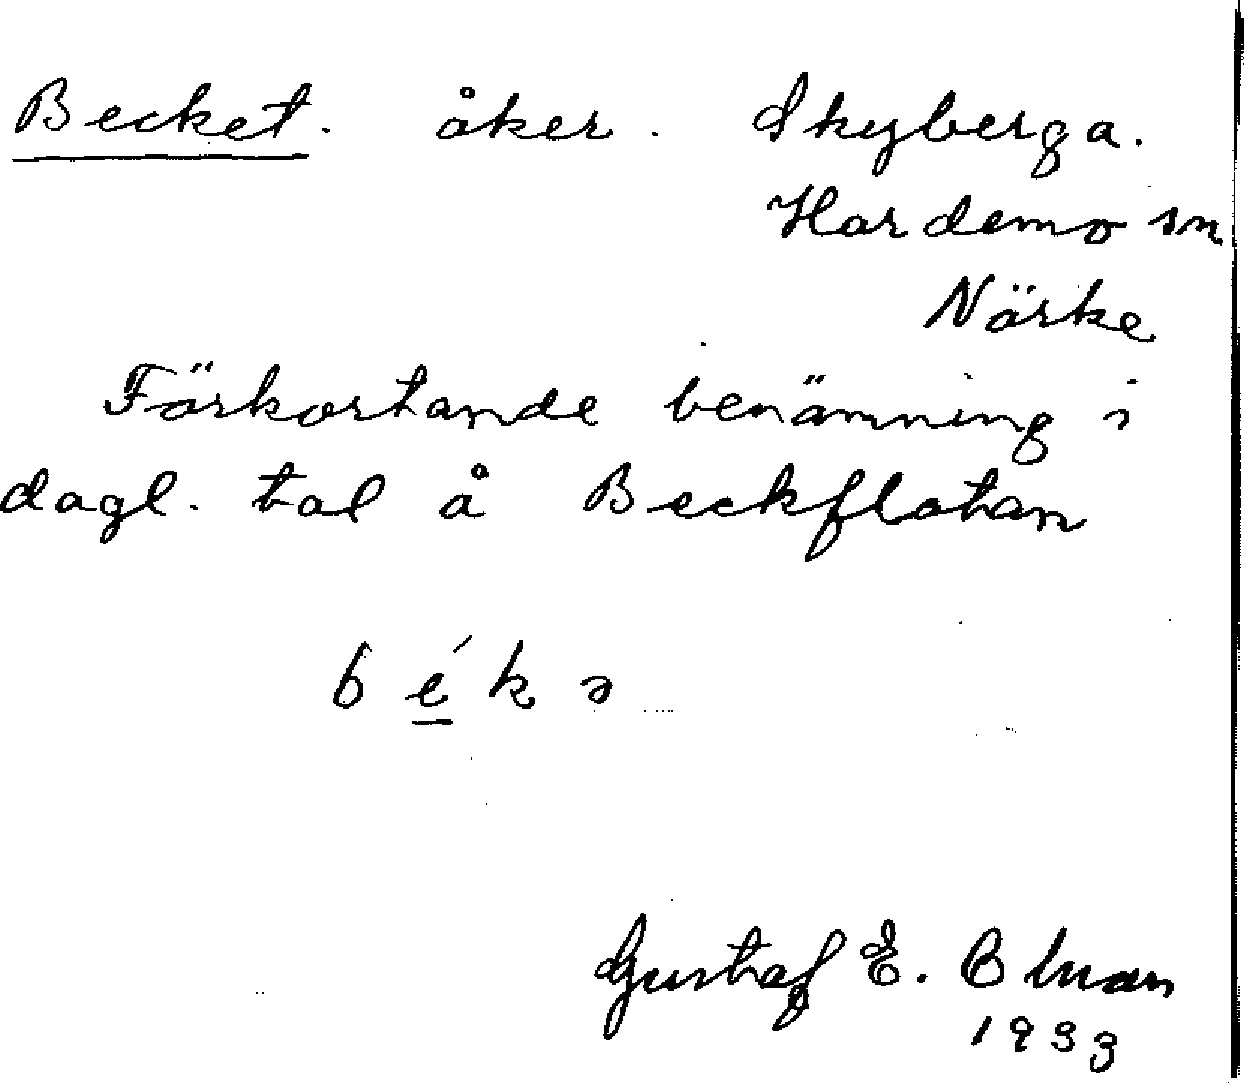 Becket. åker. Skyberga.
Hardemo sn
Närke
Förkortande benämning i
dagl. tal å Beckflatan
békə
Gustaf E.
1933